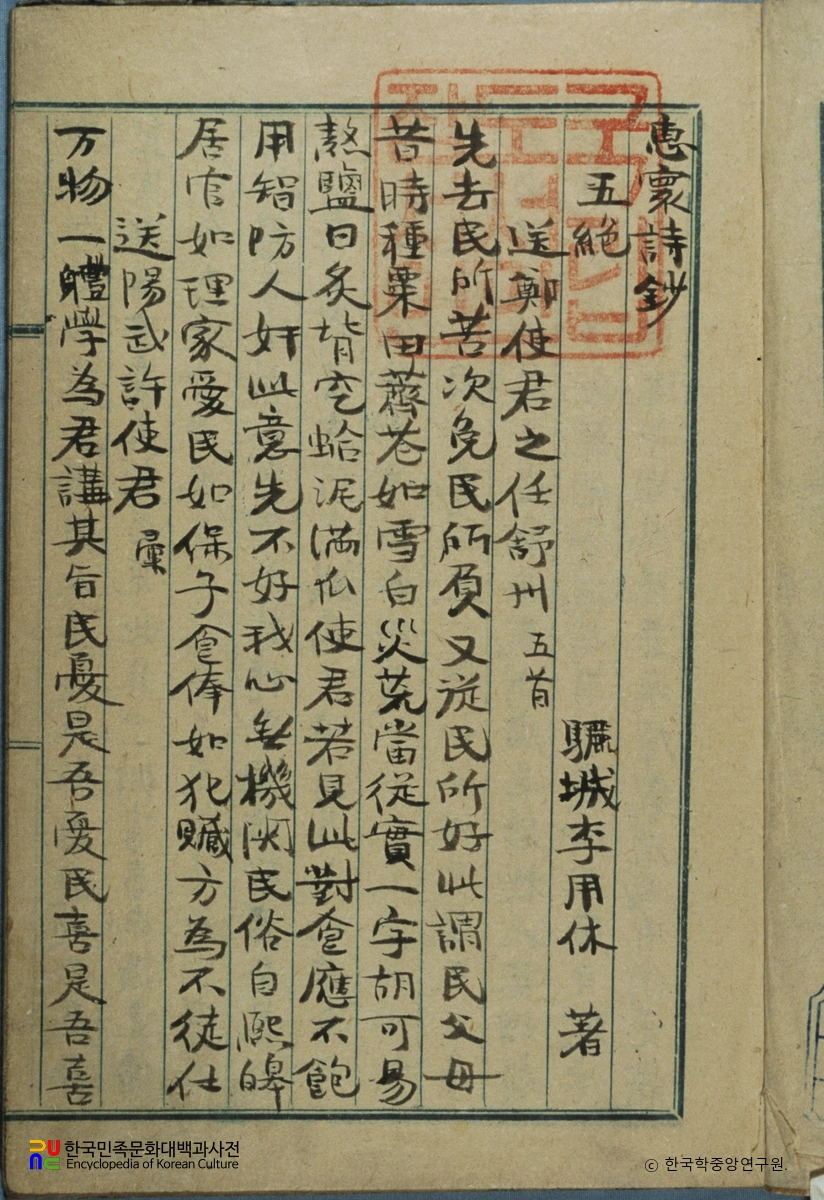 惠寰詩鈔
五絶 驪城李用休 著
送鄭使君之任舒州 五首
先去民所苦次免民所負又從民所好此謂民父母
昔時種粟田薺花如雪白災荒當從實一字胡可易
熬鹽日炙背穵蛤泥滿爪使君若見此對食應不飽
用智防人奸此意先不好我心無機関民俗自熙皥
居官如理家愛民如保子食俸如犯贓方為不徒仕
送陽武許使君 彙
万物一軆學為君講其旨民憂是吾憂民喜是吾喜
한국민족문화대백과사전
Encyclopedia of Korean Culture
ⓒ 한국학중앙연구원.